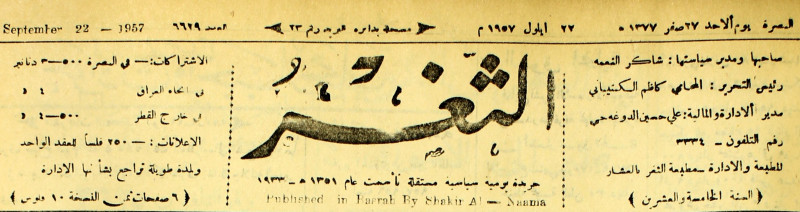 البصرة يوم الاحد ٢٧ صفر ١٣٧٧ ه
٢٢ ايلول ١٩٥٧ م
مسجلة بدائرة البريد رقم ٢٣
العدد ٦٦٢٩
September 22 – 1957
صاحبها ومدير سياستها : شاكر النعمه
رئيس التحرير : المحامي كاظم الكنيباني
مدير الادارة والمالية : علي حسين الدوغه جي
رقم التلفون – ٣٣٣٤
المطبعة والادارة – مطبعة الثغر بالعشار
( السنة الخامسة والعشرين )
الثغر
جريدة يومية سياسية مستقلة تأسست عام ١٣٥١ ه – ١٩٣٣
Published in Basrah By Shakir Al – Naama
الاشتراكات :– في البصرة ٥٠٠–٣ دنانير
في انحاء العراق ٤ د
في خارج القطر ٥٠٠–٤ د
الاعلانات :– ٢٥٠ فلساً للعقد الواحد
ولمدة طويلة تراجع بشأنها الادارة
( ٦ صفحات ثمن النسخة ١٠ فلوس )